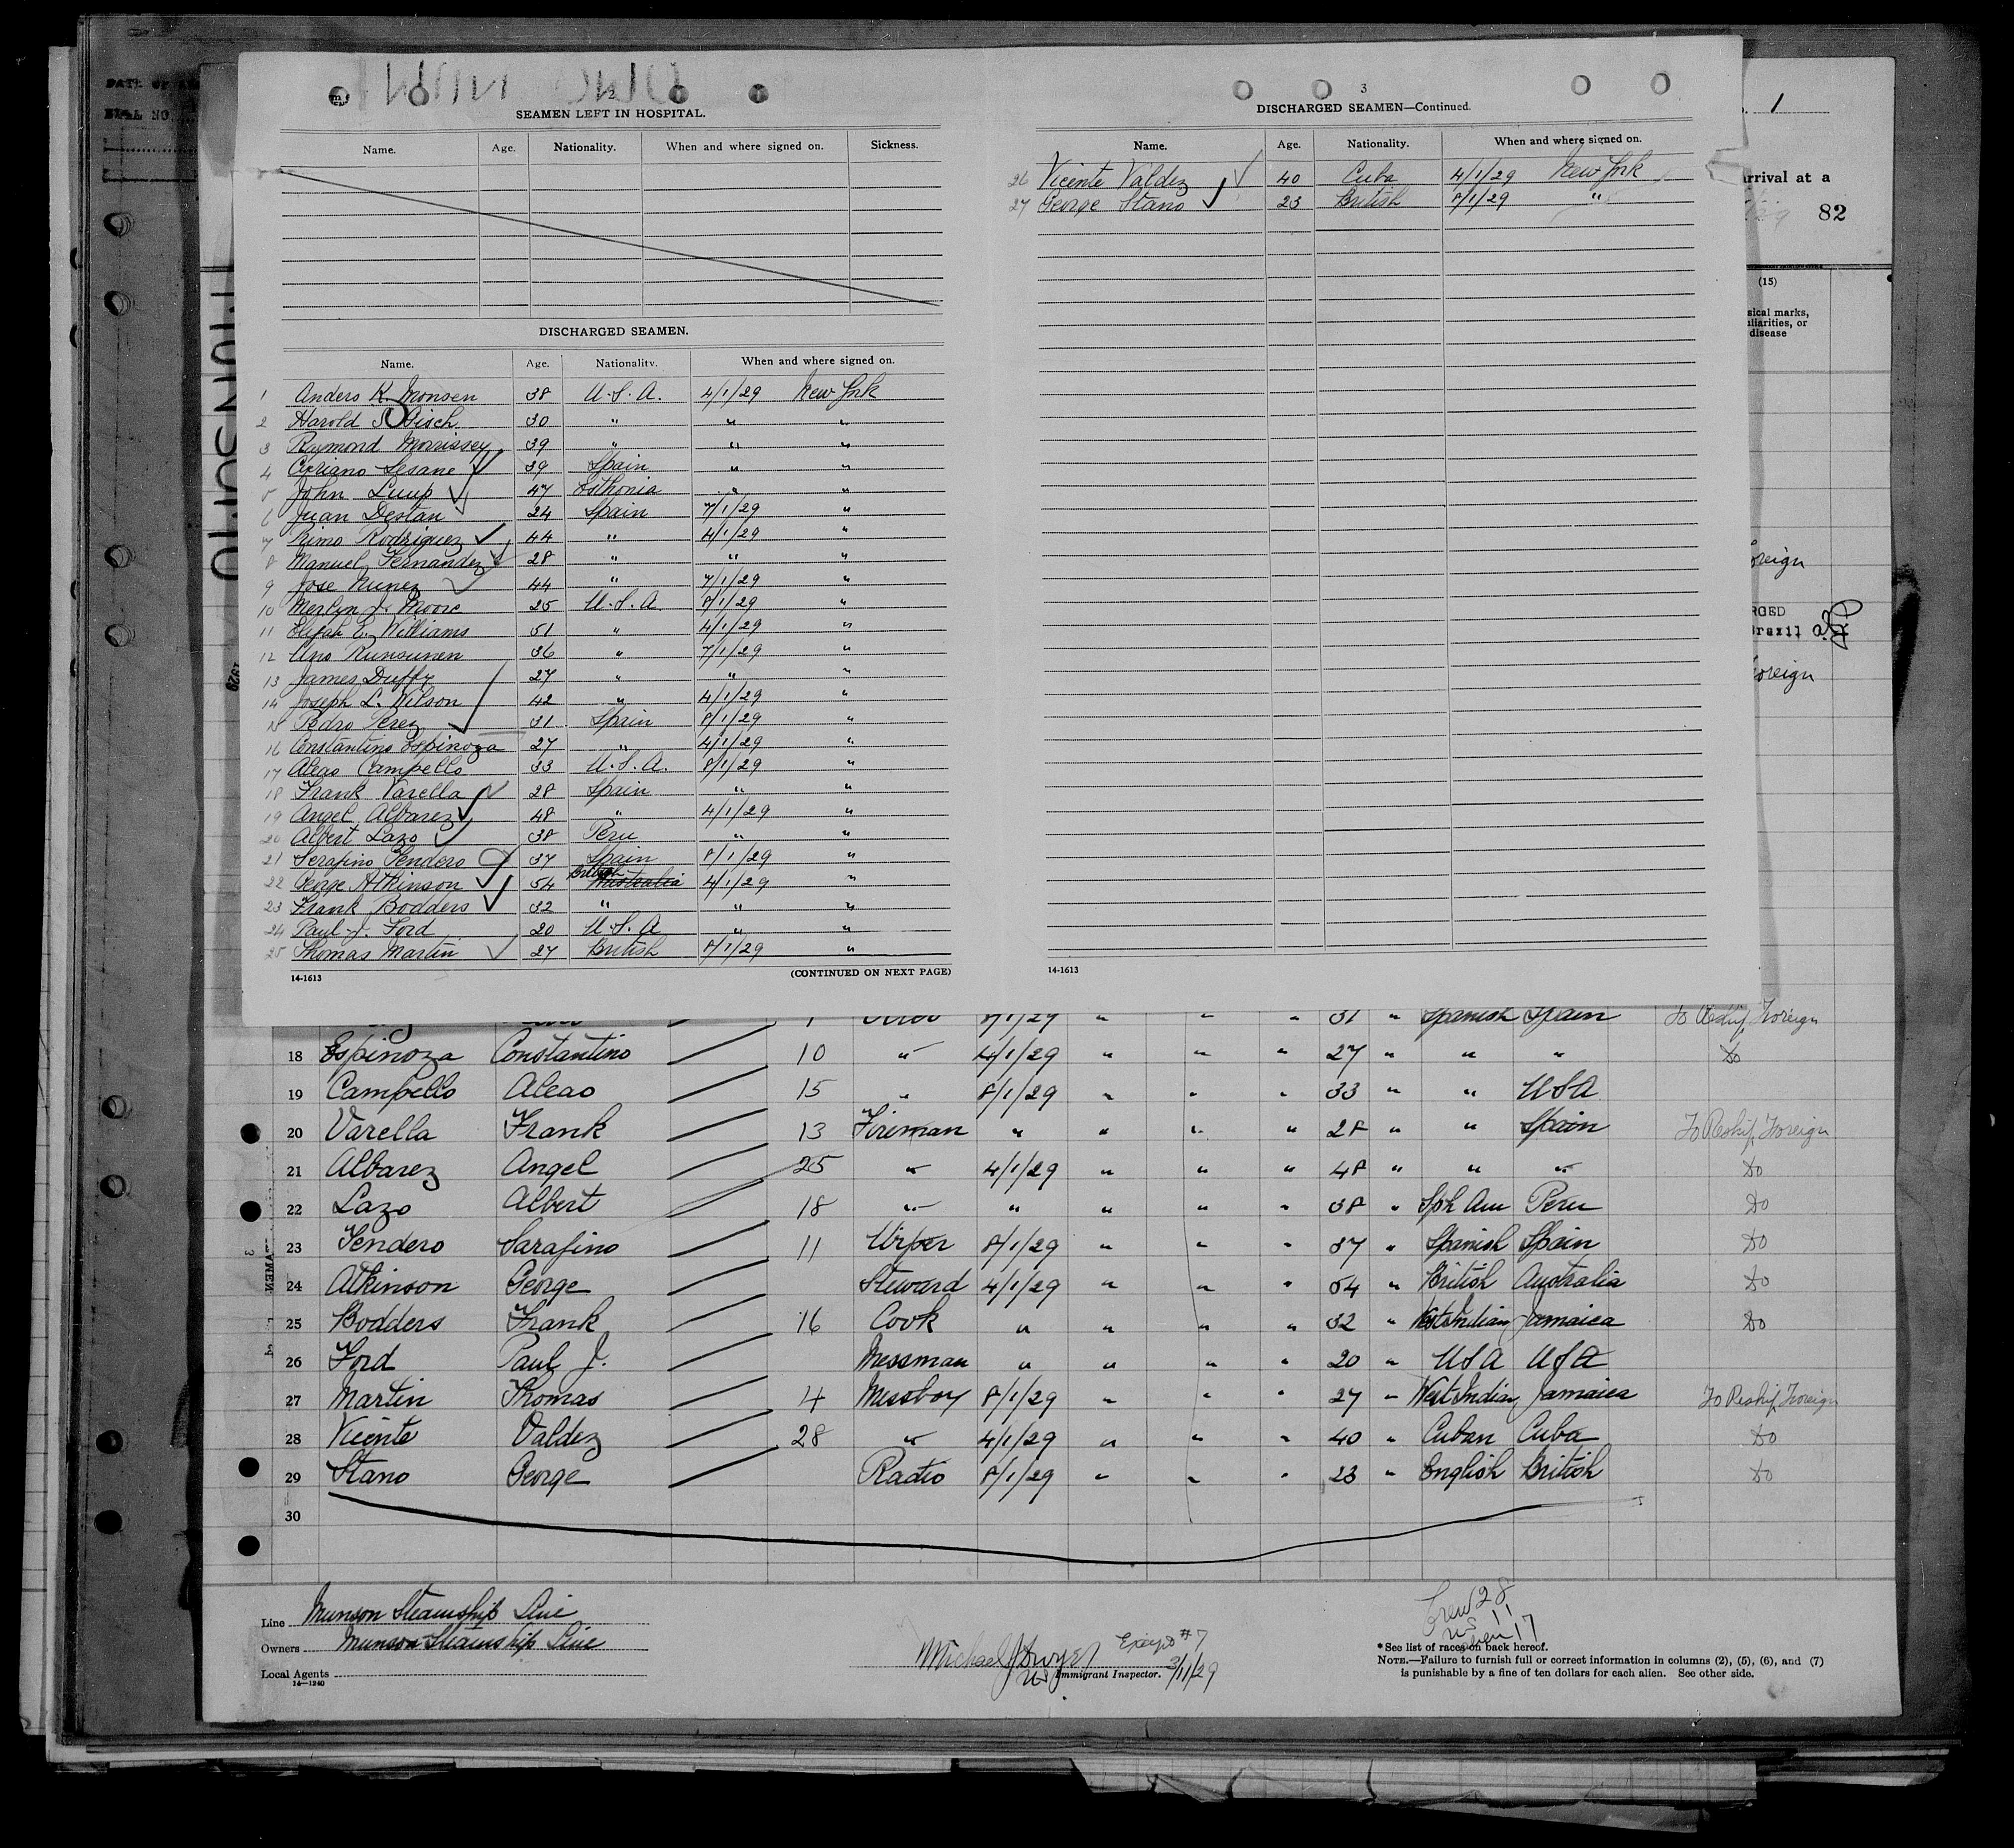 2
SEAMEN LEFT IN HOSPITAL.
Name. Age. Nationality. When and where signed on. Sickness.
DISCHARGED SEAMEN.
Name. Age. Nationality. When and where signed on.
1 Anders K. Monsen 38 U.S.A. 4/1/29 New York
2 Harold Gisch 30 " " "
3 Raymond Morrissey 39 " " "
4 Cipriano Sesane 39 Spain " "
5 John Luup 47 Esthonia " "
6 Juan Destan 24 Spain 7/1/29 "
7 Rimo Rodriguez 44 " 4/1/29 "
8 Manuel Fernandez 28 " " "
9 Jose Nunez 44 " 7/1/29 "
10 Merlyn J. Moore 25 U.S.A. 8/1/29 "
11 Elijah E. Williams 51 " 4/1/29 "
12 Uno Runsunen 36 " 7/1/29 "
13 James Duffy 27 " " "
14 Joseph L. Wilson 42 " 4/1/29 "
15 Pedro Perez 31 Spain 8/1/29 "
16 Constantino Espinoza 27 " 4/1/29 "
17 Aleao Campello 33 U.S.A. 8/1/29 "
18 Frank Varella 28 Spain " "
19 Angel Albarez 48 " 4/1/29 "
20 Albert Lazo 38 Peru " "
21 Serafino Tendero 37 Spain 8/1/29 "
22 George Atkinson 54 British Australia 4/1/29 "
23 Frank Bodders 32 " " "
24 Paul J. Ford 20 U.S.A " "
25 Thomas Martin 27 British 8/1/29 "
14-1613 (CONTINUED ON NEXT PAGE)
3
DISCHARGED SEAMEN—Continued.
Name. Age. Nationality. When and where signed on.
26 Vicente Valdez 40 Cuba 4/1/29 New York
27 George Stano 23 British 8/1/29 "
14-1613
1
arrival at a
82
(15)
sical marks,
liarities, or
disease
oreign
RGED
Brazil
Foreign
31 " Spanish Spain To Reship Foreign
18 Espinoza Constantino 10 " 4/1/29 " " " 27 " " " Do
19 Campello Aleao 15 " 8/1/29 " " " 33 " " USA
20 Varella Frank 13 Fireman " " " " 28 " " Spain To Reship Foreign
21 Albarez Angel 25 " 4/1/29 " " " 48 " " " Do
22 Lazo Albert 18 " " " " " 38 " Sph Am Peru Do
23 Tendero Sarafino 11 Wiper 8/1/29 " " " 37 " Spanish Spain Do
24 Atkinson George Steward 4/1/29 " " " 54 " British Australia Do
25 Bodders Frank 16 Cook " " " " 32 " West Indian Jamaica Do
26 Ford Paul J. Messman " " " " 20 " USA USA
27 Martin Thomas 4 Messboy 8/1/29 " " " 27 " West Indian Jamaica To Reship Foreign
28 Vicente Valdez 28 " 4/1/29 " " " 40 " Cuban Cuba Do
29 Stano George Radio 8/1/29 " " " 23 " English British Do
30
Line Munson Steamship Line
Owners Munson Steamship Line
Local Agents
14—1240
Michael J Dwyer
Immigrant Inspector. 3/11/29
Crew 28
US 11
alien 17
*See list of races on back hereof.
NOTE.—Failure to furnish full or correct information in columns (2), (5), (6), and (7)
is punishable by a fine of ten dollars for each alien. See other side.